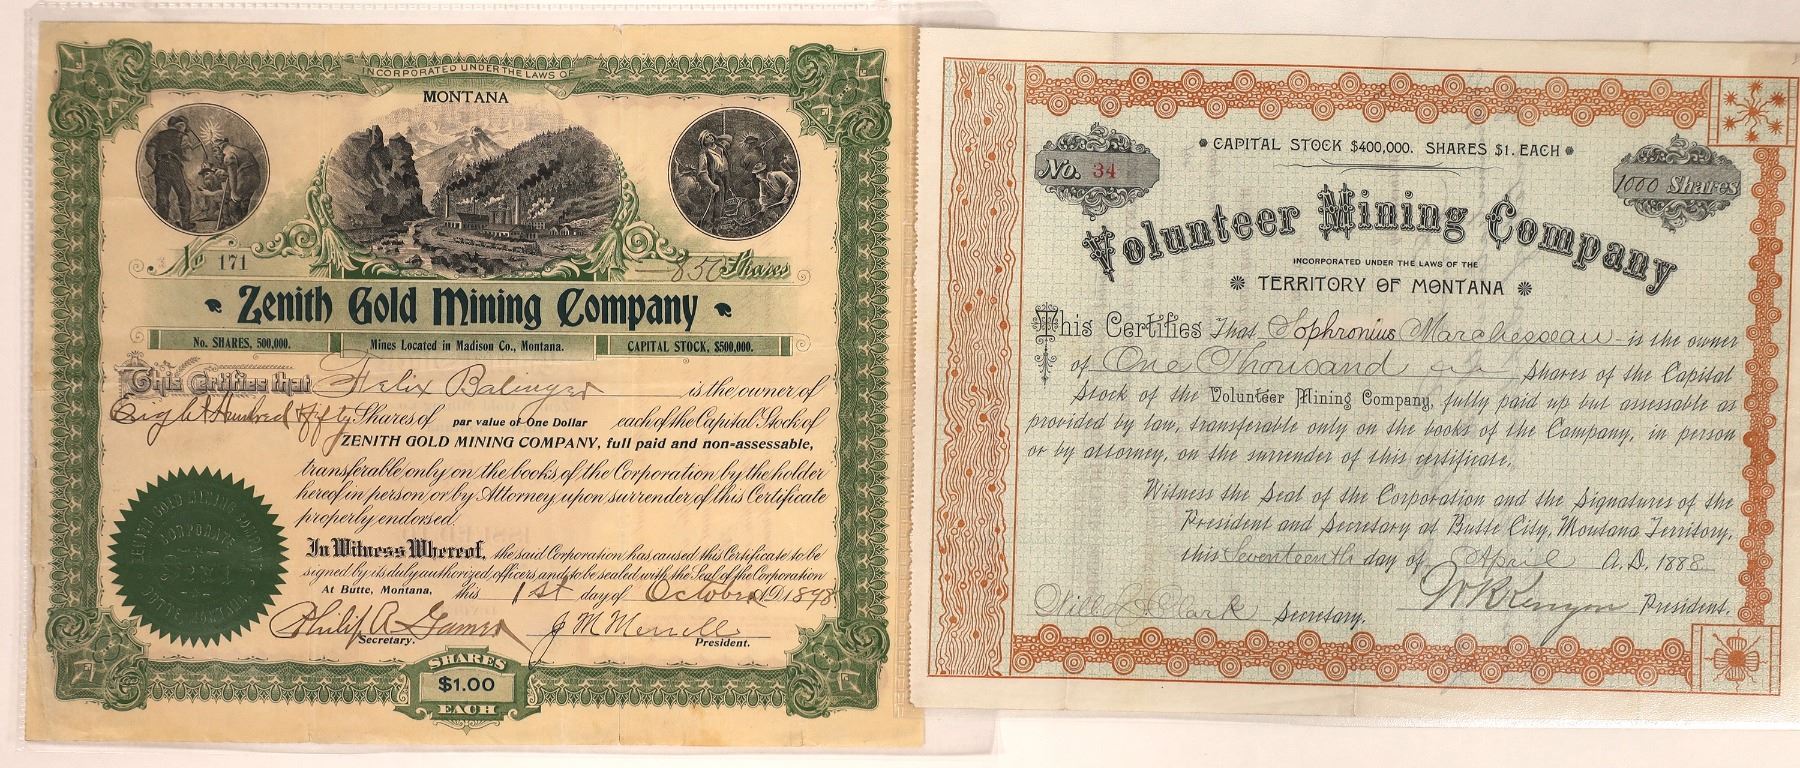 INCORPORATED UNDER THE LAWS OF
MONTANA
No 171
850 Shares
Zenith Gold Mining Company
No. SHARES, 500,000.
Mines Located in Madison Co., Montana.
CAPITAL STOCK, $500,000.
This Certifies that Felix Balinger is the owner of
Eight Hundred Fifty Shares of par value of One Dollar each of the Capital Stock of
ZENITH GOLD MINING COMPANY, full paid and non-assessable,
transferable only on the books of the Corporation by the holder
hereof in person or by Attorney upon surrender of this Certificate
properly endorsed.
In Witness Whereof, the said Corporation has caused this Certificate to be
signed by its duly authorized officers and to be sealed with the Seal of the Corporation
At Butte, Montana, this 1st day of October A.D. 1898
Philip A
J M Merrill
Secretary.
President.
ZENITH GOLD MINING COMPANY
CORPORATE
SEAL
BUTTE, MONTANA.
SHARES
$1.00
EACH
CAPITAL STOCK $400,000. SHARES $1. EACH
No. 34
1000 Shares
Volunteer Mining Company
INCORPORATED UNDER THE LAWS OF THE
TERRITORY OF MONTANA
This Certifies That Sophronius Marchesseau is the owner
of One Thousand Shares of the Capital
Stock of the Volunteer Mining Company, fully paid up but assessable as
provided by law, transferable only on the books of the Company, in person
or by attorney, on the surrender of this certificate.
Witness the Seal of the Corporation and the Signatures of the
President and Secretary at Butte City, Montana Territory,
this Seventeenth day of April A.D. 1888
Clark Secretary. W R Kenyon President.